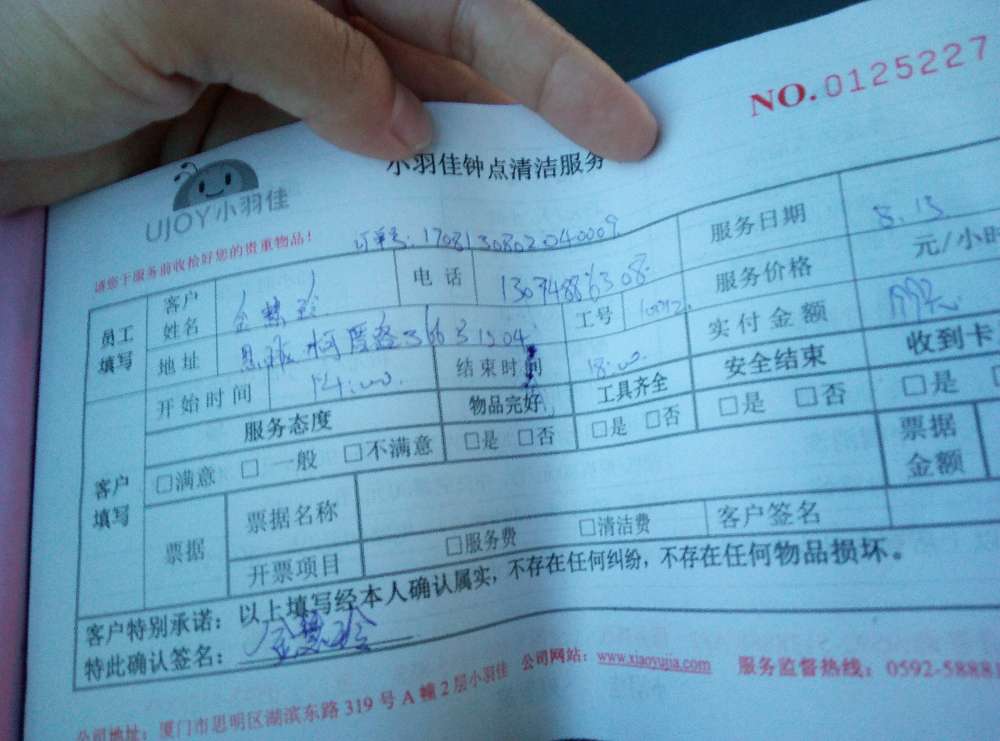 NO.0125227
小羽佳钟点清洁服务
UJOY小羽佳
请您于服务前收拾好您的贵重物品!
订单号:1708130802040009
员工填写
客户姓名
电话
服务日期 8.13
地址
工号
服务价格 元/小时
开始时间 14:00
结束时间 18:00
实付金额
客户填写
服务态度 物品完好 工具齐全 安全结束 收到卡
□满意 □一般 □不满意 □是 □否 □是 □否 □是 □否 □是
票据
票据名称
票据金额
开票项目 □服务费 □清洁费 客户签名
客户特别承诺:以上填写经本人确认属实,不存在任何纠纷,不存在任何物品损坏。
特此确认签名:
公司地址:厦门市思明区湖滨东路319号A幢2层小羽佳 公司网站:www.xiaoyujia.com 服务监督热线:0592-58881